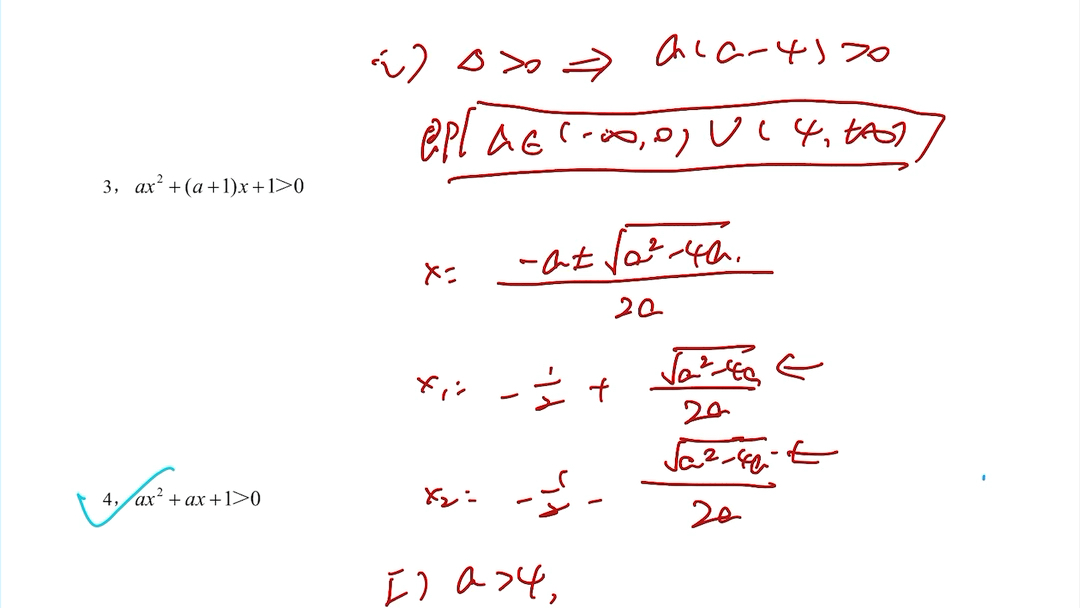 i) Δ>0 ⇒ a(a-4)>0
即 a∈(-∞,0)∪(4,+∞)
3， ax²+(a+1)x+1>0
x= \frac{-a±√(a²-4a)}{2a}
x₁= -\frac{1}{2} + \frac{√(a²-4a)}{2a} ←
x₂= -\frac{1}{2} - \frac{√(a²-4a)}{2a} ←
4， ax²+ax+1>0
I) a>4,